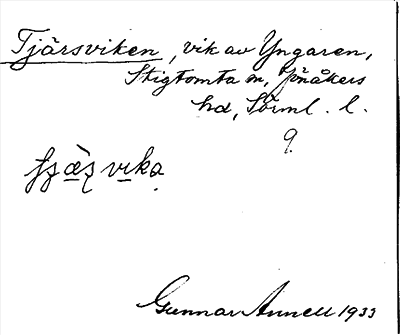 Tjärsviken, vik av Yngaren,
Stigtomta sn, Jönåkers
hd, Sörml. l.
9.
vika
Gunnar Annell 1933